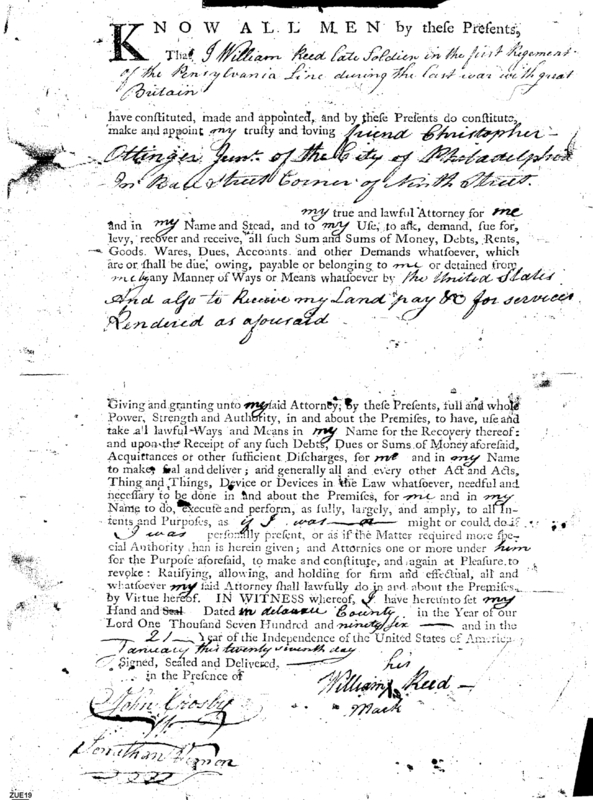 KNOW ALL MEN by these Presents,
That I William Reed late Soldier in the first Regement
of the Pensylvania Line during the last war with great
Britain
have constituted, made and appointed, and by these Presents do constitute,
make and appoint my trusty and loving friend Christopher
Ottinger Junr. of the City of Philadelphia
In Street Corner of Ninth Street.
my true and lawful Attorney for me
and in my Name and Stead, and to my Use, to ask, demand, sue for,
levy, recover and receive, all such Sum and Sums of Money, Debts, Rents,
Goods, Wares, Dues, Accounts and other Demands whatsoever, which
are or shall be due, owing, payable or belonging to me or detained from
me by any Manner of Ways or Means whatsoever by the United States
And also to Receive my Land pay &c for services
Rendered as aforesaid
Giving and granting unto my said Attorney, by these Presents, full and whole
Power, Strength and Authority, in and about the Premises, to have, use and
take all lawful Ways and Means in my Name for the Recovery thereof:
and upon the Receipt of any such Debts, Dues or Sums of Money aforesaid,
Acquittances or other sufficient Discharges, for me and in my Name
to make, seal and deliver; and generally all and every other Act and Acts,
Thing and Things, Device or Devices in the Law whatsoever, needful and
necessary to be done in and about the Premises, for me and in my
Name to do, execute and perform, as fully, largely, and amply, to all In-
tents and Purposes, as if I was a might or could do if
I was personally present, or as if the Matter required more spe-
cial Authority than is herein given; and Attornies one or more under him
for the Purpose aforesaid, to make and constitute, and again at Pleasure to
revoke: Ratifying, allowing, and holding for firm and effectual, all and
whatsoever my said Attorney shall lawfully do in and about the Premises,
by Virtue hereof. IN WITNESS whereof, I have hereunto set my
Hand and Seal Dated in delaware County in the Year of our
Lord One Thousand Seven Hundred and ninety six and in the
21 Year of the Independence of the United States of America
January this twenty seventh day
Signed, Sealed and Delivered,
in the Presence of
his
William Reed
Mark
John Crosby
Jonathan Vernon
ZUE19